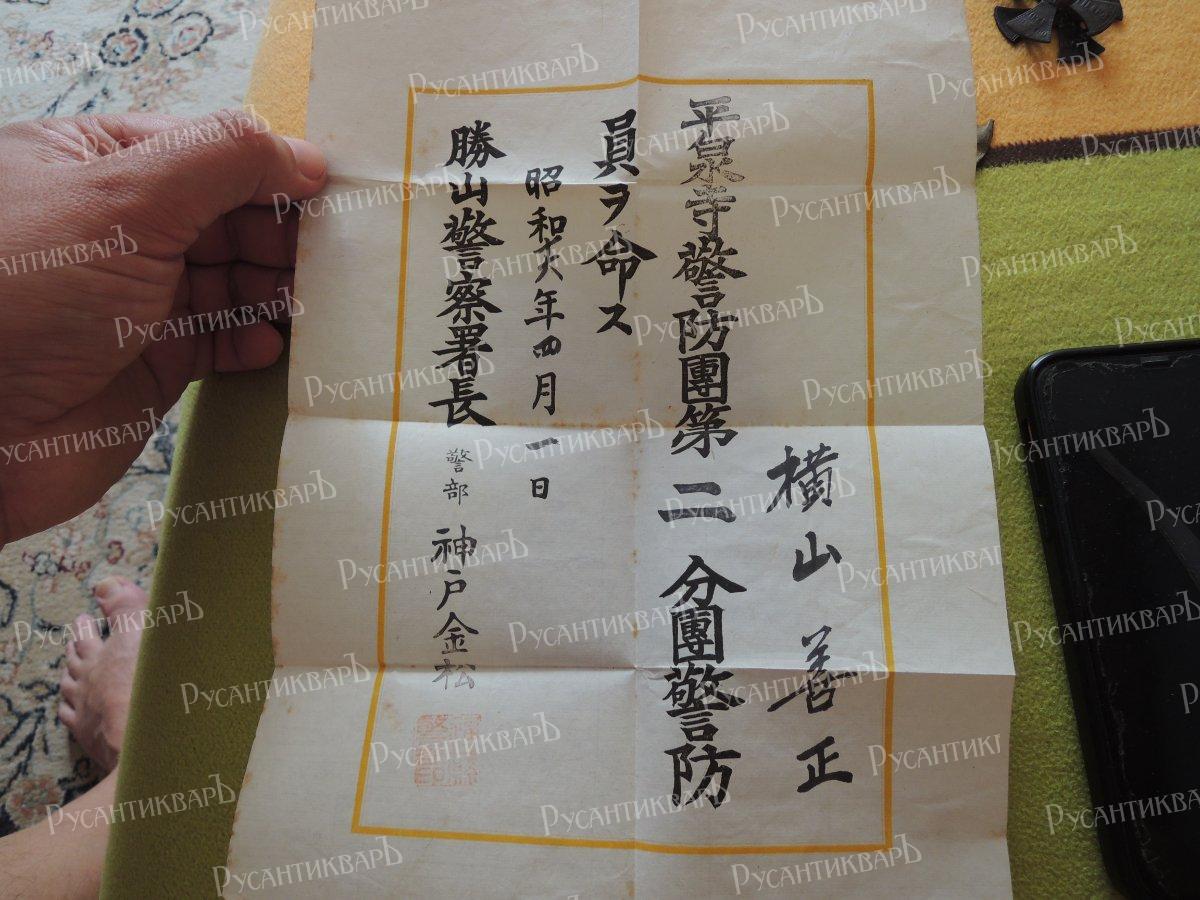 横山善正
平泉寺警防團第二分團警防
員ヲ命ス
昭和十六年四月一日
勝山警察署長 警部 神戸金松
РусАнтикварЪ